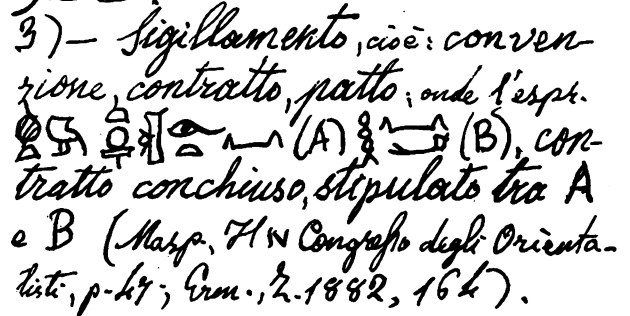 3) — Sigillamento, cioè: conven-
zione, contratto, patto; onde l'espr.
(A) (B), con-
tratto conchiuso, stipulato tra A
e B (Masp., Congreſso degli Orienta-
listi, p. 47; Erm., Z. 1882, 164).